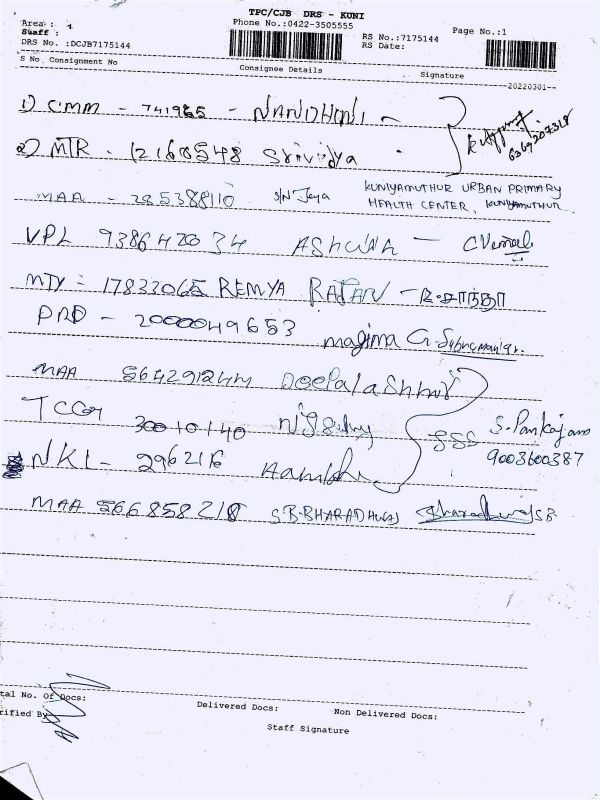 TPC/CJB DRS - KUNI
Area : 1
Phone No.:0422-3505555
Page No.:1
Staff :
RS No.:7175144
DRS No. :DCJB7175144
RS Date:
S No. Consignment No
Consignee Details
Signature
20220301
1) CMM - 741965 - NANDHINI
6369207318
2) MTR - 12168548 Srividya
MAA - 285388110 S/N Jeya KUNIYAMUTHUR URBAN PRIMARY
HEALTH CENTER, KUNIYAMUTHUR
VPL 938642034 ASHWINA
MTY : 17833065 REMYA RAJAN - R. சாந்தா
PRD - 2000049653 Magima G.
MAA 564291244
TCG 30010140
S. Pankajam
NKL - 296216
9003600387
MAA 566858210 S.B. BHARADHWAJ Bharadhwaj SB
tal No. Of Docs:
Delivered Docs:
Non Delivered Docs:
rified By
Staff Signature